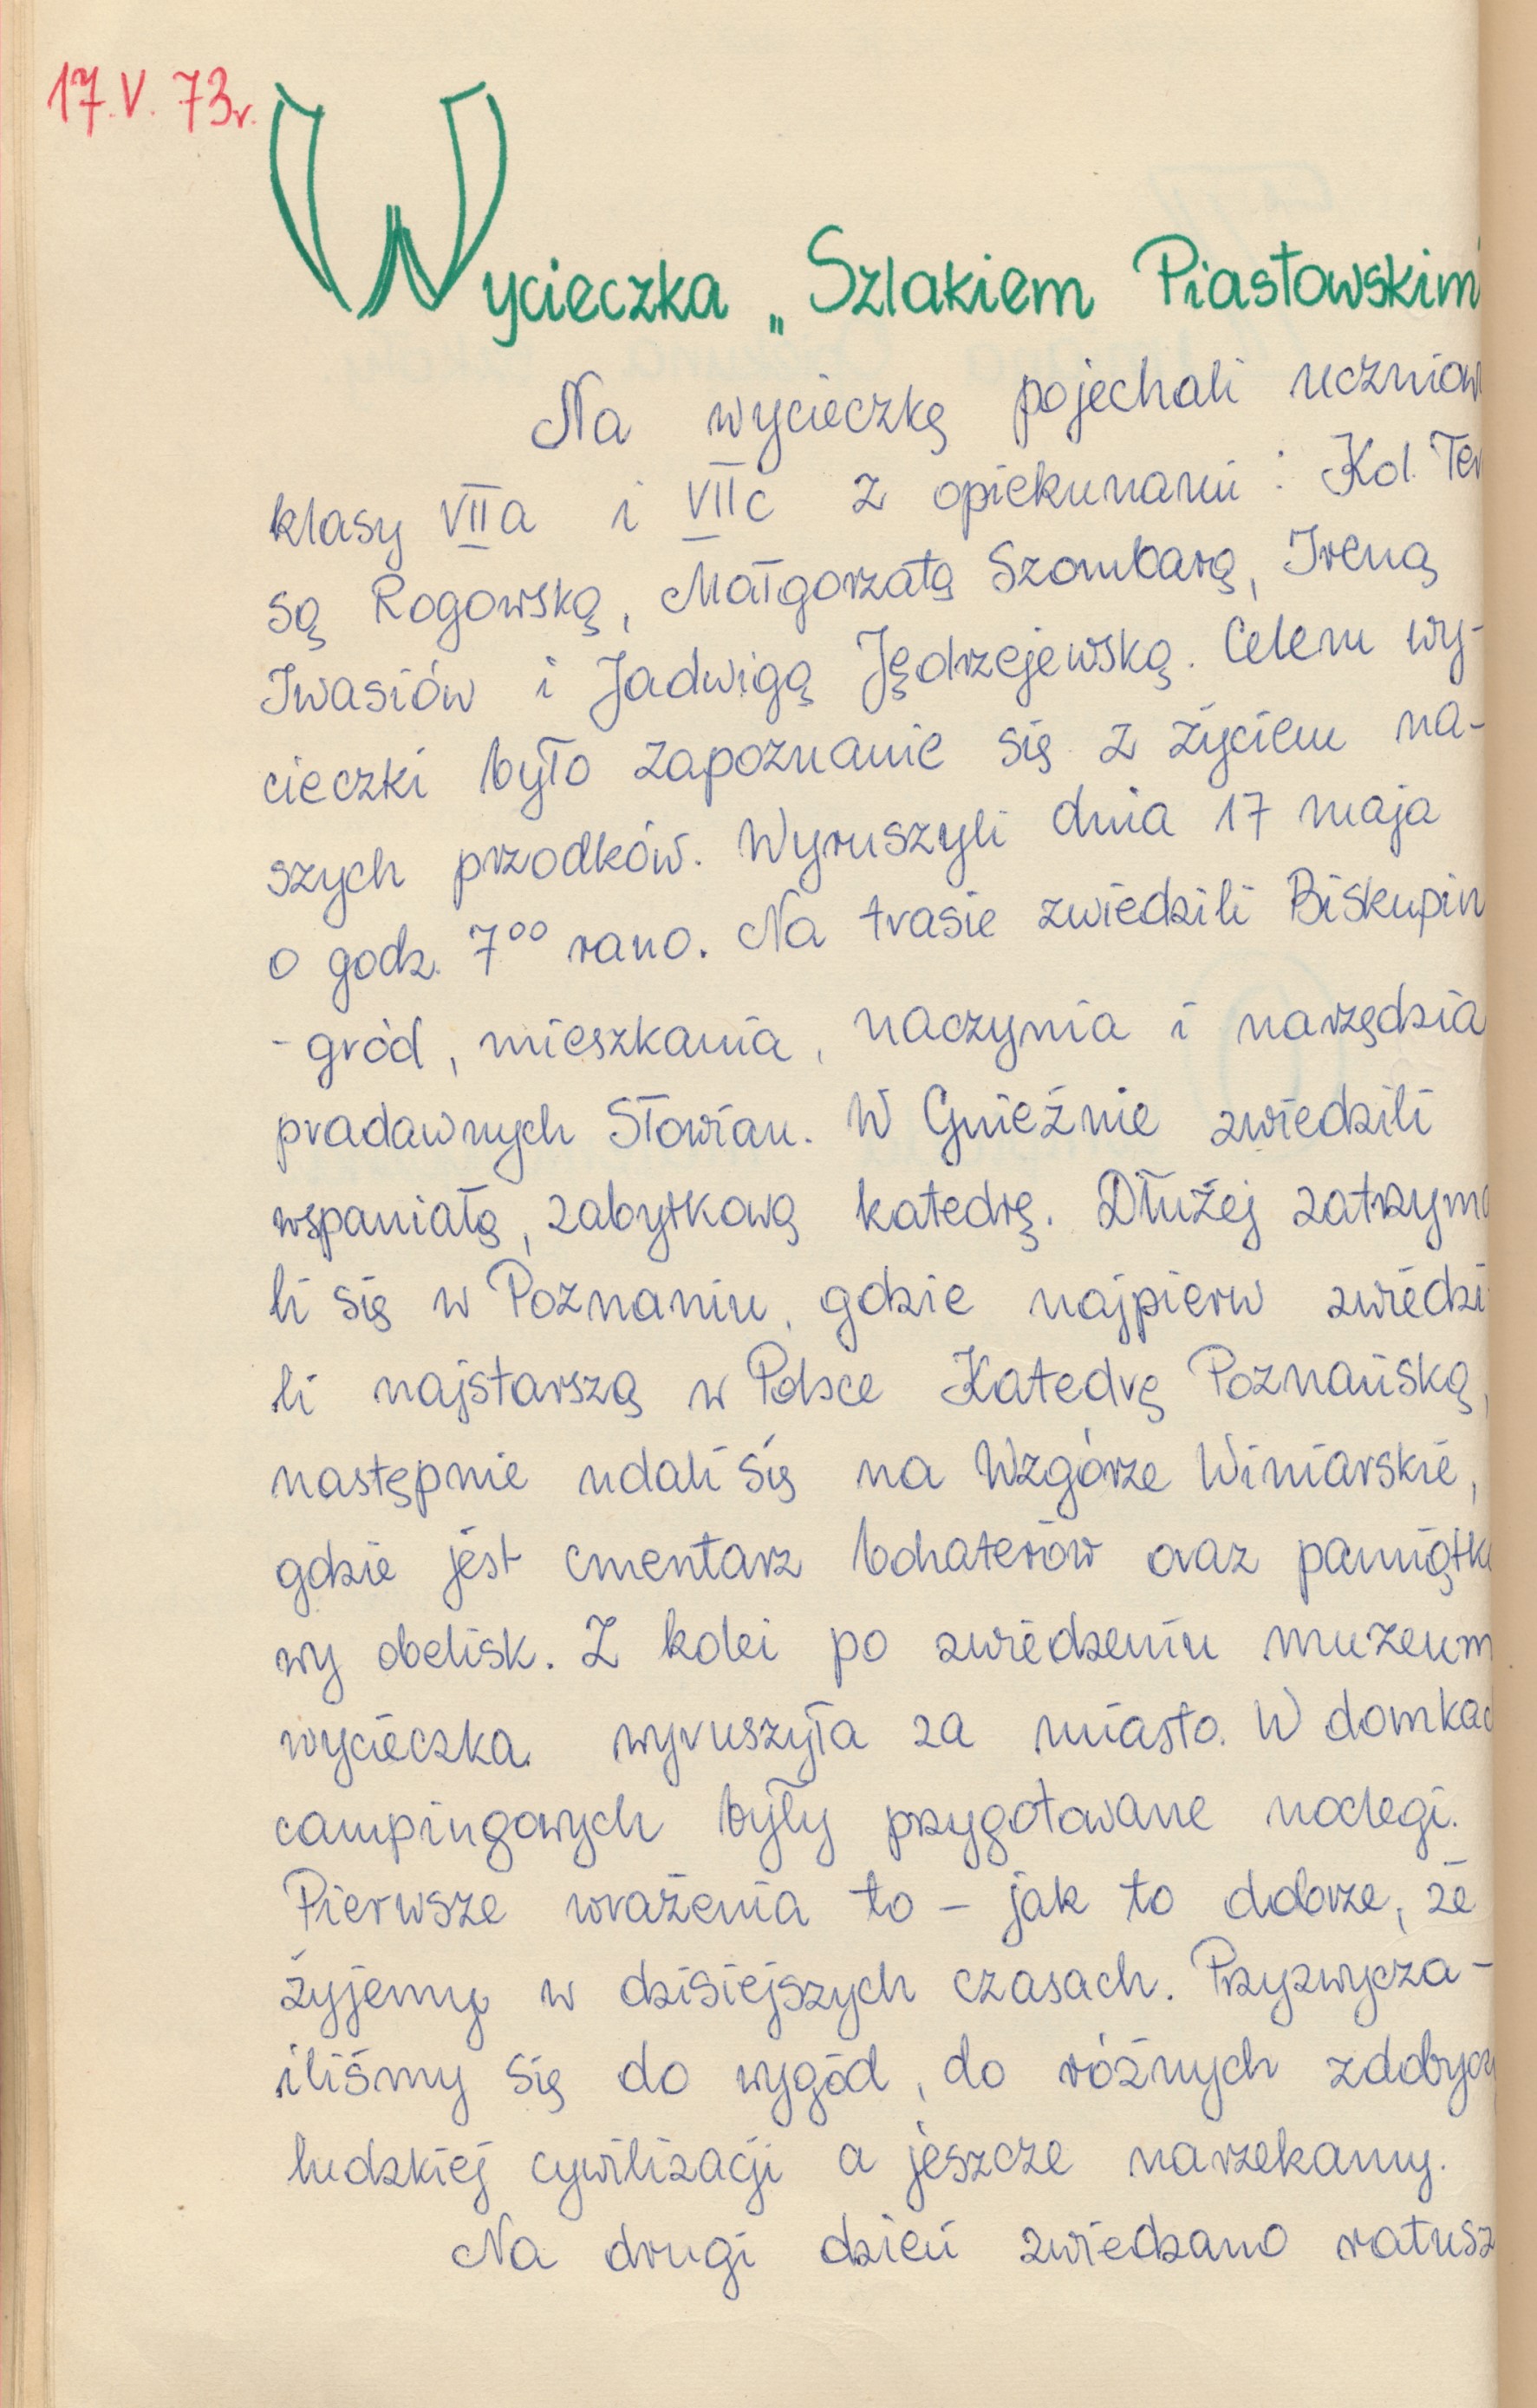 17.V.73r.
Wycieczka „Szlakiem Piastowskim
Na wycieczkę pojechali uczniow
klasy VIIa i VIIc z opiekunami: Kol. Ter
są Rogowską, Małgorzatą Szombarą, Ireną
Iwasiów i Jadwigą Jędrzejewską. Celem wy-
cieczki było zapoznanie się z życiem na-
szych przodków. Wyruszyli dnia 17 maja
o godz. 7⁰⁰ rano. Na trasie zwiedzili Biskupin
- gród, mieszkania, naczynia i narzędzia
pradawnych Słowian. W Gnieźnie zwiedzili
wspaniałą, zabytkową katedrę. Dłużej zatrzyma
li się w Poznaniu, gdzie najpierw zwiedzi
li najstarszą w Polsce Katedrę Poznańską,
następnie udali się na Wzgórze Winiarskie,
gdzie jest cmentarz bohaterów oraz pamiątko
wy obelisk. Z kolei po zwiedzeniu muzeum
wycieczka wyruszyła za miasto. W domkac
campingowych były przygotowane noclegi.
Pierwsze wrażenia to – jak to dobrze, że
żyjemy w dzisiejszych czasach. Przyzwycza-
iliśmy się do wygód, do różnych zdobyczy
ludzkiej cywilizacji a jeszcze narzekamy.
Na drugi dzień zwiedzano ratusz